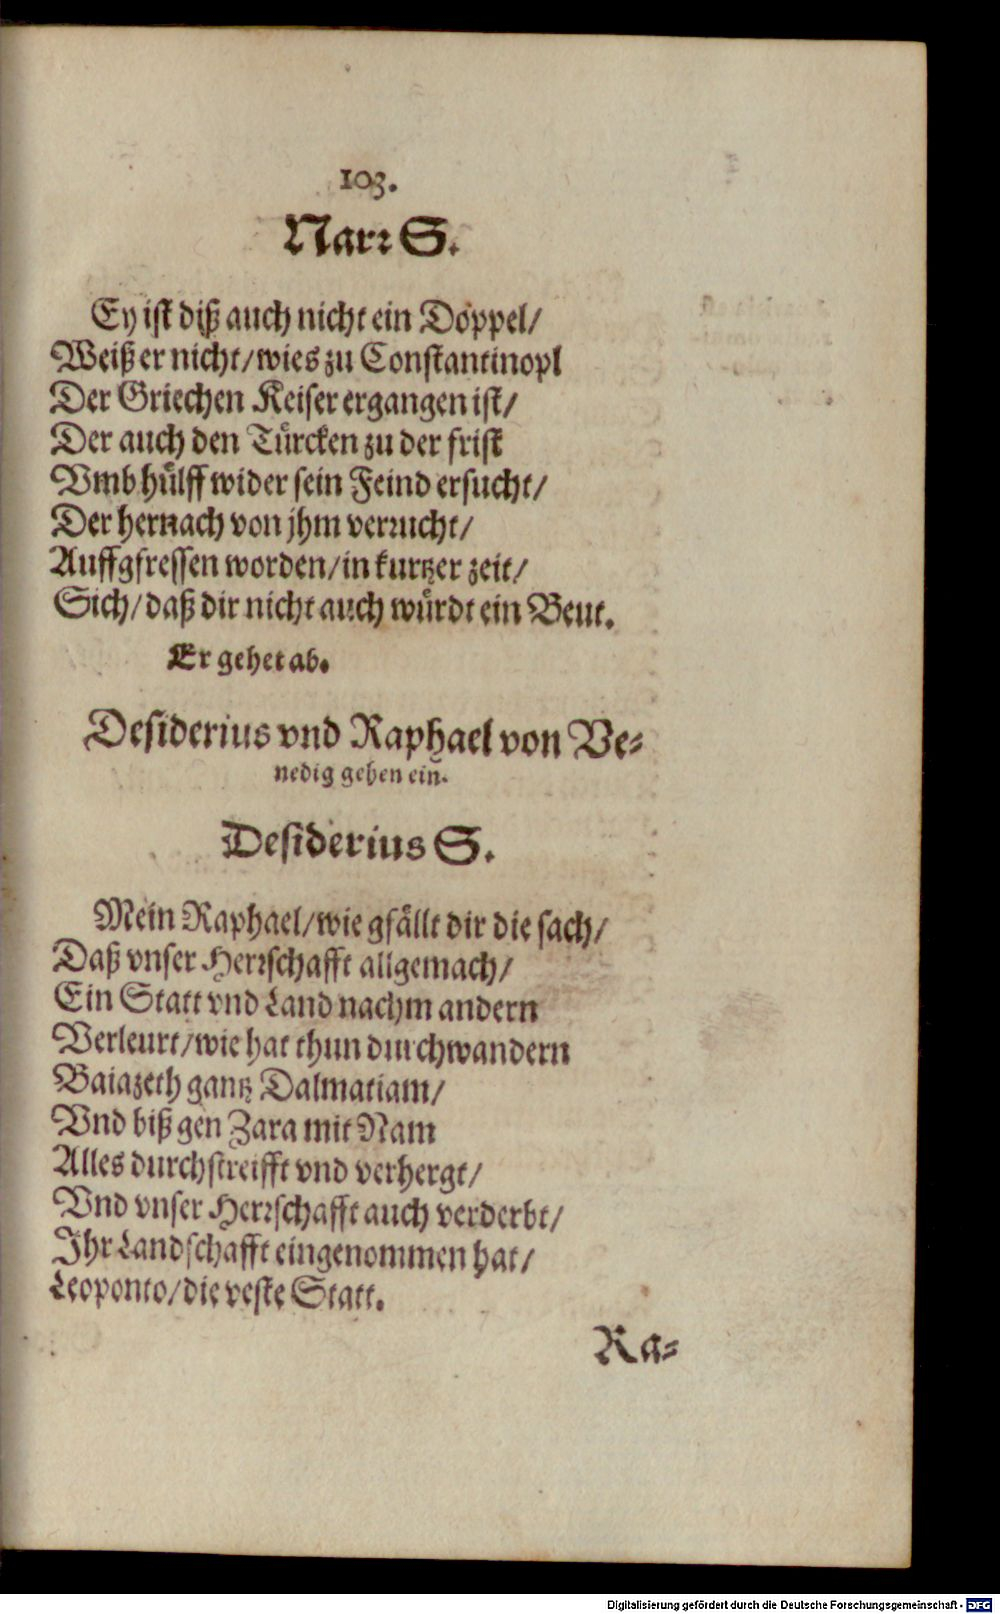 103.
Narr S.
Ey ist diß auch nicht ein Döppel/
Weiß er nicht/wies zu Constantinopl
Der Griechen Keiser ergangen ist/
Der auch den Türcken zu der frist
Vmb hülff wider sein Feind ersucht/
Der hernach von jhm verrucht/
Auffgfressen worden/in kurtzer zeit/
Sich/daß dir nicht auch würdt ein Beut.
Er gehet ab.
Desiderius vnd Raphael von Ve-
nedig gehen ein.
Desiderius S.
Mein Raphael/wie gfällt dir die sach/
Daß vnser Herrschafft allgemach/
Ein Statt vnd Land nachm andern
Verleurt/wie hat thun durchwandern
Baiazeth gantz Dalmatiam/
Vnd biß gen Zara mit Nam
Alles durchstreifft vnd verhergt/
Vnd vnser Herrschafft auch verderbt/
Ihr Landschafft eingenommen hat/
Leoponto/die veste Statt.
Ra-
Digitalisierung gefördert durch die Deutsche Forschungsgemeinschaft - DFG